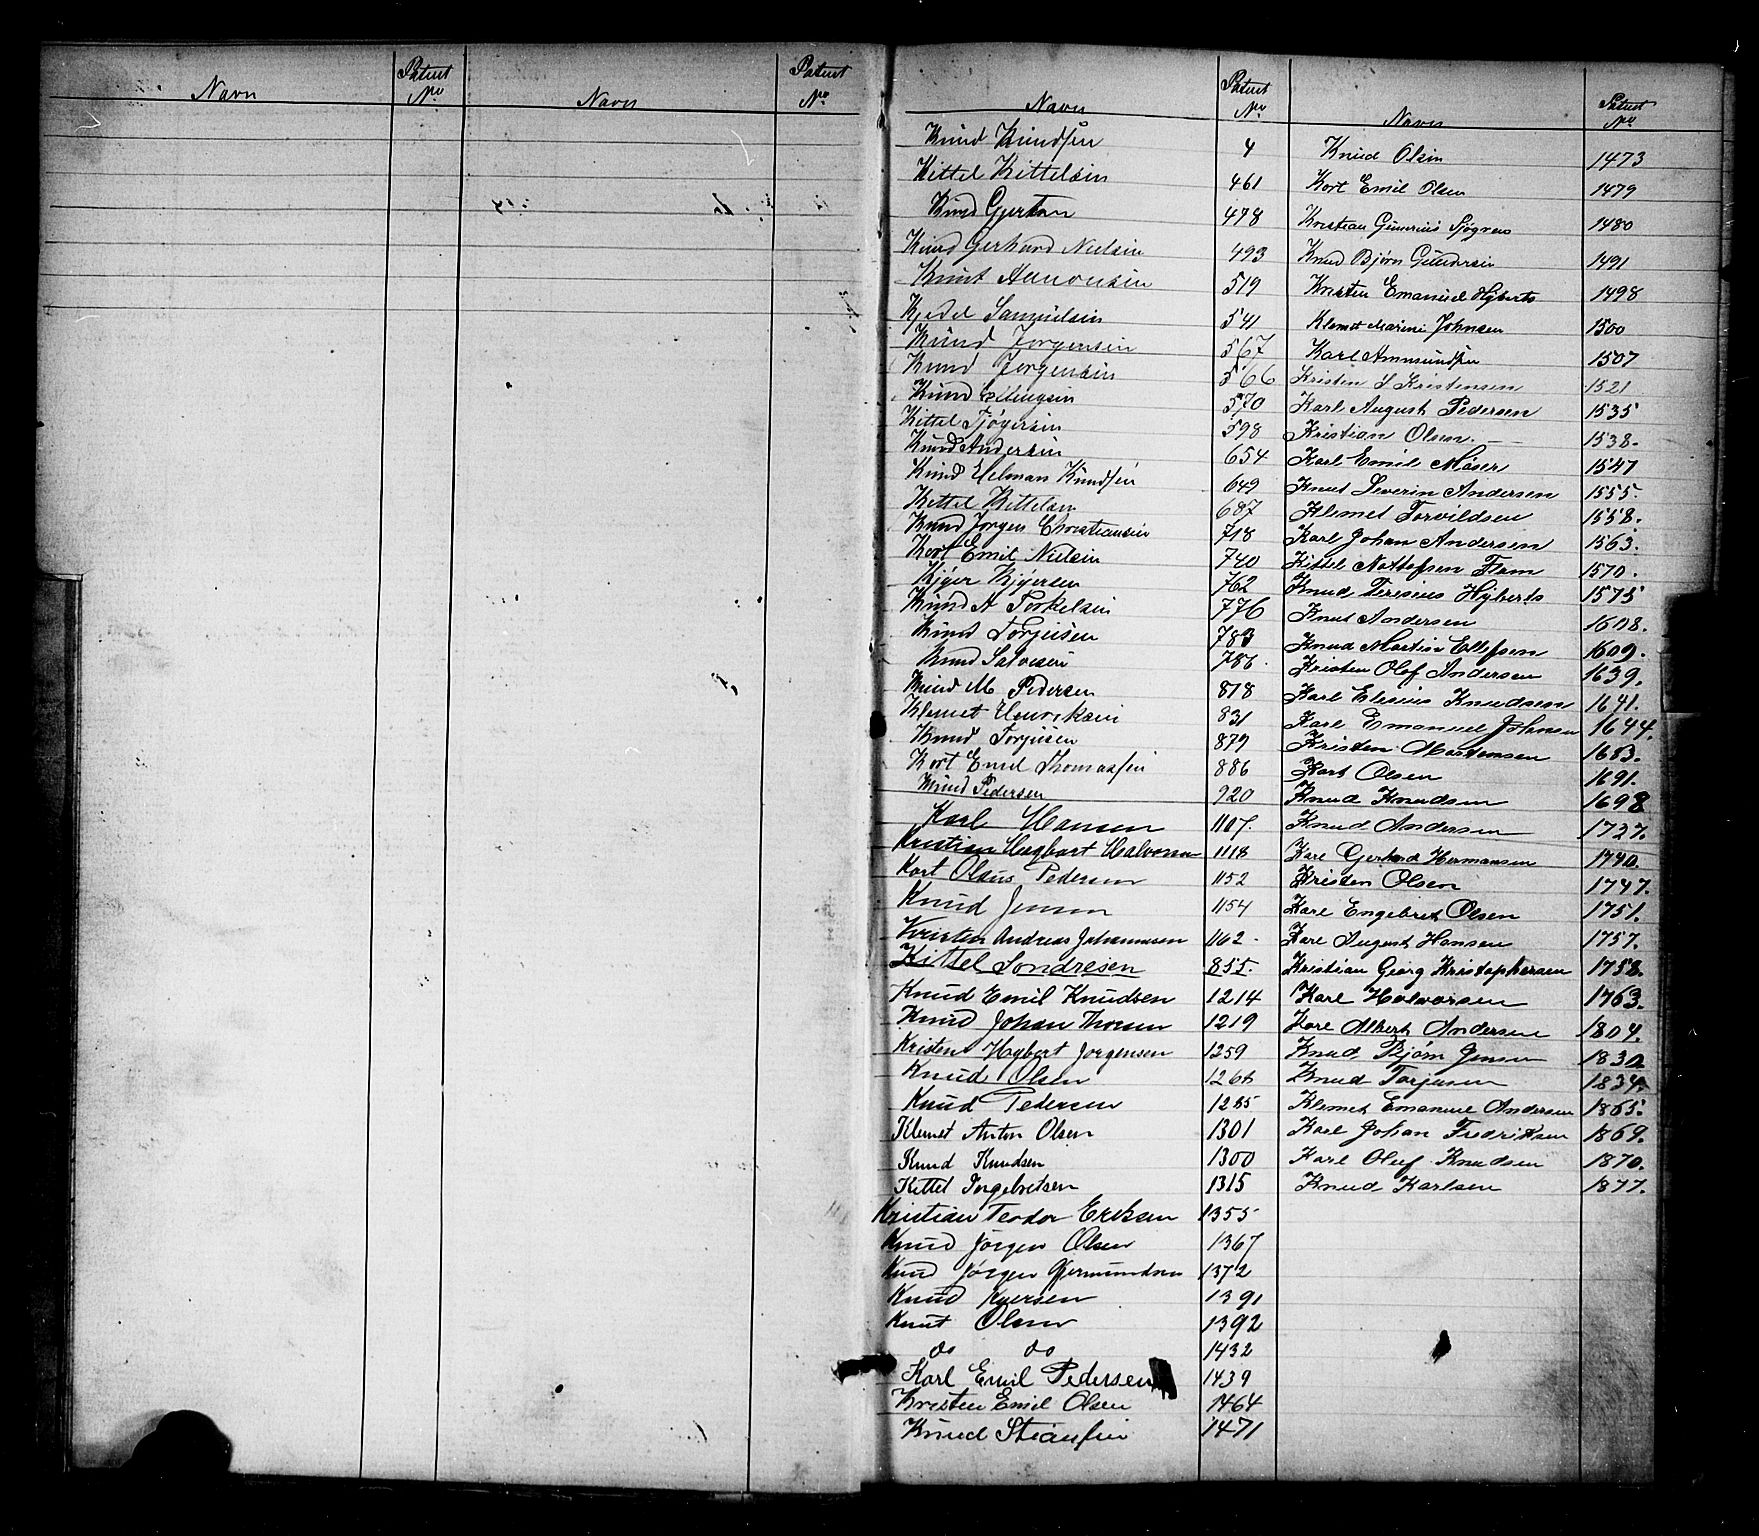 Navn Patent No Navn Patent No
Navn Patent No Navn Patent No
Knud Knudsen 4
Kittel Kittelsen 461
Knud Gjertsen 478
Knud Gerhard Nielsen 493
Knut Aanonsen 519
Kjedel Samuelsen 541
Knud Jorgensen 567
Knud Jorgensen 566
Knud Ellingsen 570
Kittel Tjøgersen 598
Knud Andersen 654
Knud Helman Knudsen 649
Kittel Kittelsen 687
Knud Jørgen Christiansen 718
Kort Emil Nielsen 740
Kjøer Kjøersen 762
Knud A Torkelsen 776
Knud Torjusen 783
Knud Salvesen 786.
Knud M Pedersen 818
Klemet Henriksen 831
Knud Torjusen 879
Kort Emil Thomassen 886
Knud Pedersen 920
Karl Hansen 1107.
Kristian Hagbart Halvorsen 1118
Kort Olaus Pedersen 1152
Knud Jensen 1154
Kristen Andreas Johannesen 1162.
Kittel Sondresen 855.
Knud Emil Knudsen 1214
Knud Johan Thorsen 1219
Kristen Hybert Jorgensen 1259
Knud Olsen
Knud Pedersen 1285
Klemet Anton Olsen 1301
Knud Knudsen 1300
Kittel Ingebretsen 1315
Kristian Teodor Eriksen 1355
Knud Jörgen Olsen 1367
Knud Jörgen Gjermundsen 1372
Knud Kjersen 1391
Knut Olsen 1392
do do 1432
Karl Emil Pedersen 1439
Kristen Emil Olsen 1464
Knud Stiansen 1471
Knud Olsen 1473
Kort Emil Olsen 1479
Kristian Gunerius Sjøgren 1480
Knud Bjørn Gundersen 1491
Kristen Emanuel Hyberts 1498
Klemet Marini Johnsen 1500
Karl Ammundsen 1507
Kristen S Kristensen 1521
Karl August Pedersen 1535
Kristian Olsen. 1538.
Karl Emil Möser 1547
Knut Severin Andersen 1555.
Klemet Torvildsen 1558.
Karl Johan Andersen 1563.
Kittel Nottofsen Flam 1570.
Knud Terisius Hyberts 1575
Knut Andersen 1608.
Knud Martin Ellefsen 1609.
Kristen Olof Andersen 1639.
Karl Elesius Knudsen 1641.
Karl Emanuel Johnsen 1644.
Kristen Mortensen 1683.
Kort Olsen 1691.
Knud Knudsen 1698
Knud Andersen 1727.
Karl Gerhard Hermansen 1740.
Kristen Olsen 1747.
Karl Engebret Olsen 1751.
Karl August Hansen 1757.
Kristian Georg Kristophersen 1758.
Karl Halvorsen 1763.
Karl Albert Andersen 1804.
Knud Bjørn Jensen 1830
Knud Torjusen 1834.
Klemet Emanuel Andersen 1865.
Karl Johan Fredriksen 1869.
Karl Oluf Knudsen 1870.
Knud Karlsen 1877.